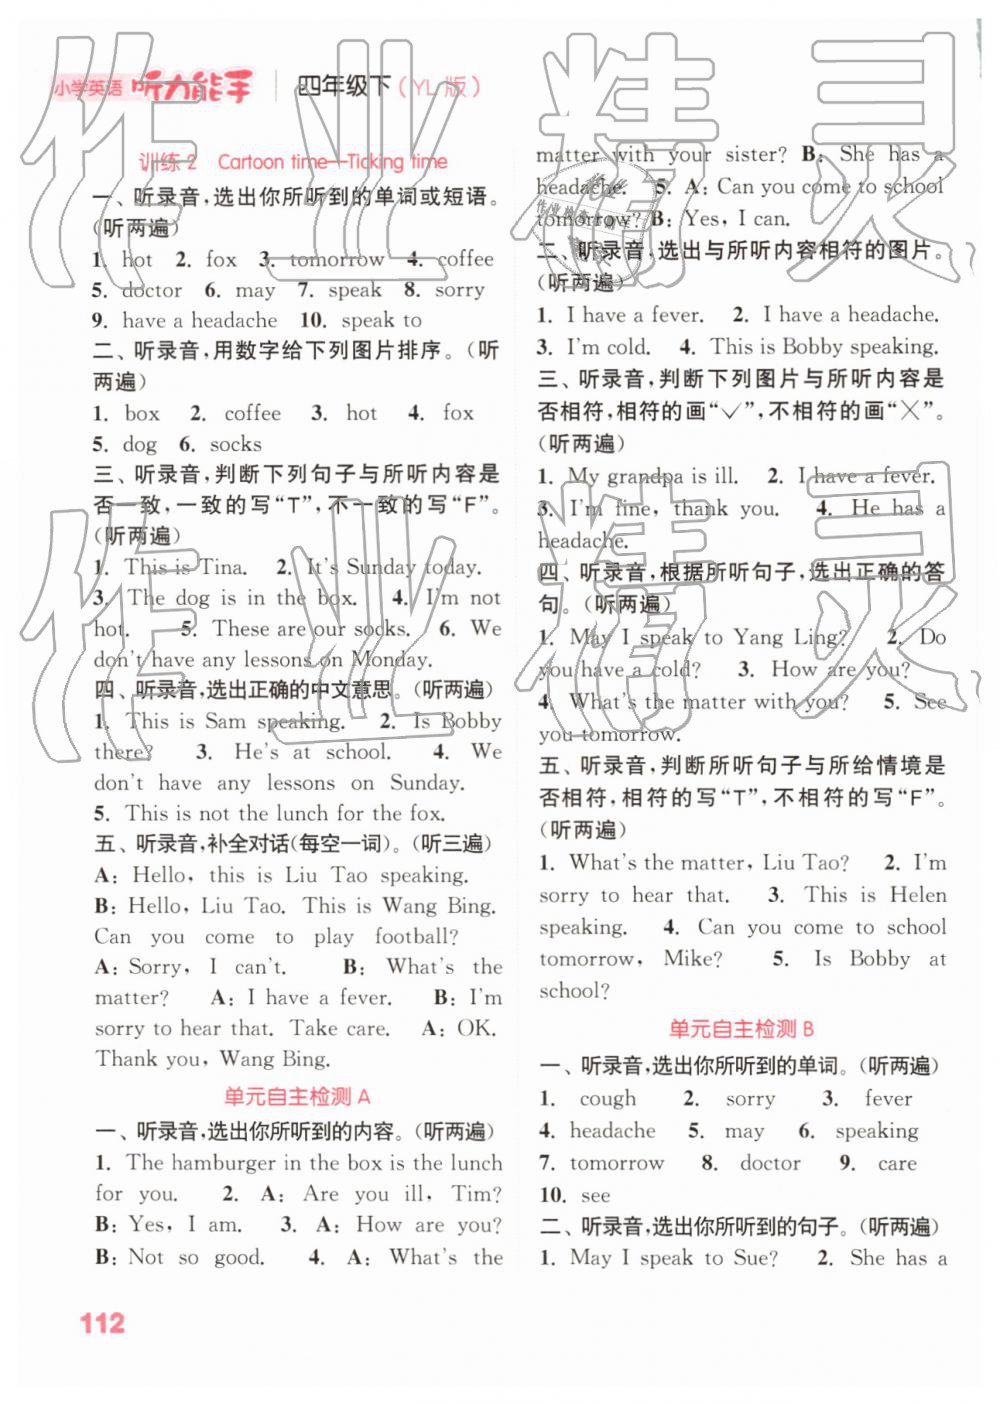 小学英语 听力能手 四年级下（YL版）
训练2 Cartoon time—Ticking time
一、听录音,选出你所听到的单词或短语。
(听两遍)
1. hot 2. fox 3. tomorrow 4. coffee
5. doctor 6. may 7. speak 8. sorry
9. have a headache 10. speak to
二、听录音,用数字给下列图片排序。(听
两遍)
1. box 2. coffee 3. hot 4. fox
5. dog 6. socks
三、听录音,判断下列句子与所听内容是
否一致,一致的写“T”,不一致的写“F”。
(听两遍)
1. This is Tina. 2. It's Sunday today.
3. The dog is in the box. 4. I'm not
hot. 5. These are our socks. 6. We
don't have any lessons on Monday.
四、听录音,选出正确的中文意思。(听两遍)
1. This is Sam speaking. 2. Is Bobby
there? 3. He's at school. 4. We
don't have any lessons on Sunday.
5. This is not the lunch for the fox.
五、听录音,补全对话(每空一词)。(听三遍)
A: Hello, this is Liu Tao speaking.
B: Hello, Liu Tao. This is Wang Bing.
Can you come to play football?
A: Sorry, I can't. B: What's the
matter? A: I have a fever. B: I'm
sorry to hear that. Take care. A: OK.
Thank you, Wang Bing.
单元自主检测 A
一、听录音,选出你所听到的内容。(听两遍)
1. The hamburger in the box is the lunch
for you. 2. A: Are you ill, Tim?
B: Yes, I am. 3. A: How are you?
B: Not so good. 4. A: What's the
matter with your sister? B: She has a
headache. 5. A: Can you come to school
tomorrow? B: Yes, I can.
二、听录音,选出与所听内容相符的图片。
(听两遍)
1. I have a fever. 2. I have a headache.
3. I'm cold. 4. This is Bobby speaking.
三、听录音,判断下列图片与所听内容是
否相符,相符的画“✓”,不相符的画“✗”。
(听两遍)
1. My grandpa is ill. 2. I have a fever.
3. I'm fine, thank you. 4. He has a
headache.
四、听录音,根据所听句子,选出正确的答
句。(听两遍)
1. May I speak to Yang Ling? 2. Do
you have a cold? 3. How are you?
4. What's the matter with you? 5. See
you tomorrow.
五、听录音,判断所听句子与所给情境是
否相符,相符的写“T”,不相符的写“F”。
(听两遍)
1. What's the matter, Liu Tao? 2. I'm
sorry to hear that. 3. This is Helen
speaking. 4. Can you come to school
tomorrow, Mike? 5. Is Bobby at
school?
单元自主检测 B
一、听录音,选出你所听到的单词。(听两遍)
1. cough 2. sorry 3. fever
4. headache 5. may 6. speaking
7. tomorrow 8. doctor 9. care
10. see
二、听录音,选出你所听到的句子。(听两遍)
1. May I speak to Sue? 2. She has a
112
作业精灵
作业精灵